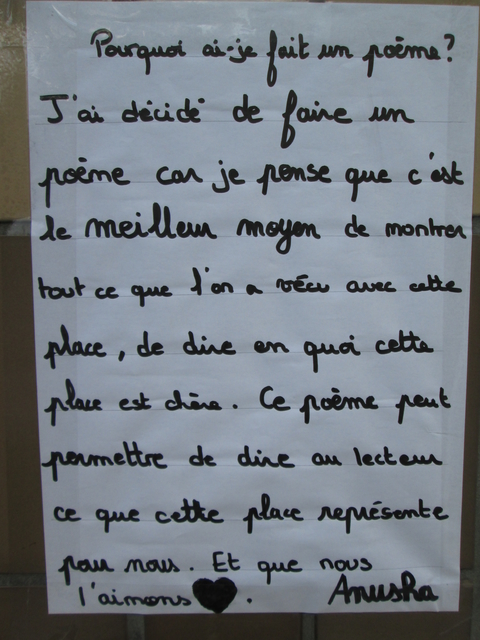 Pourquoi ai-je fait un poème?
J'ai décidé de faire un
poème car je pense que c'est
le meilleur moyen de montrer
tout ce que l'on a vécu avec cette
place, de dire en quoi cette
place est chère. Ce poème peut
permettre de dire au lecteur
ce que cette place représente
pour nous. Et que nous
l'aimons ♥.
Anusha